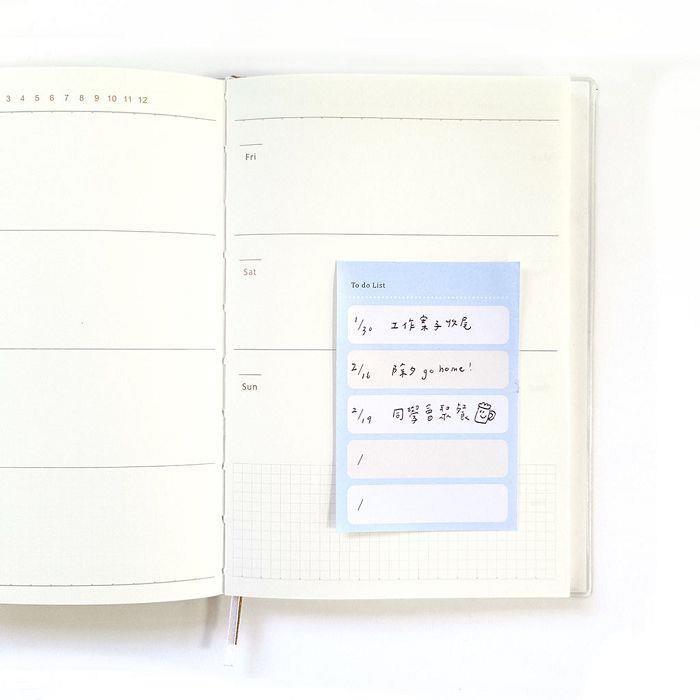 3 4 5 6 7 8 9 10 11 12
Fri
Sat
Sun
To do List
1/30 工作案子收尾
2/16 除夕 go home!
2/19 同學會聚餐
/
/